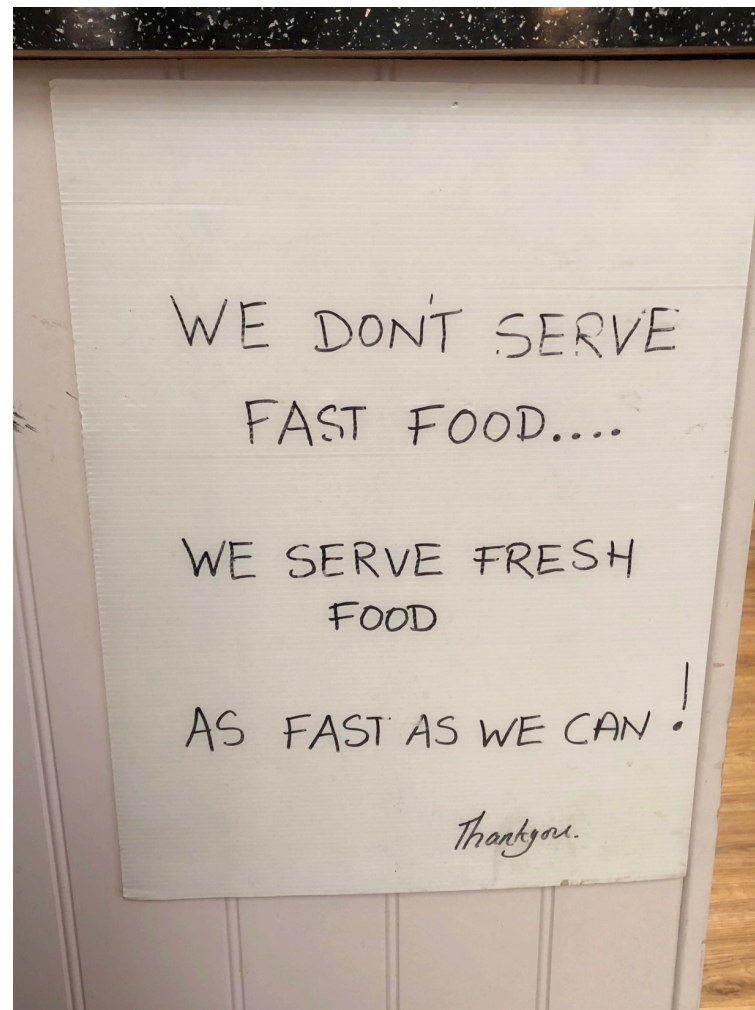 WE DON'T SERVE
FAST FOOD....
WE SERVE FRESH
FOOD
AS FAST AS WE CAN !
Thankyou.